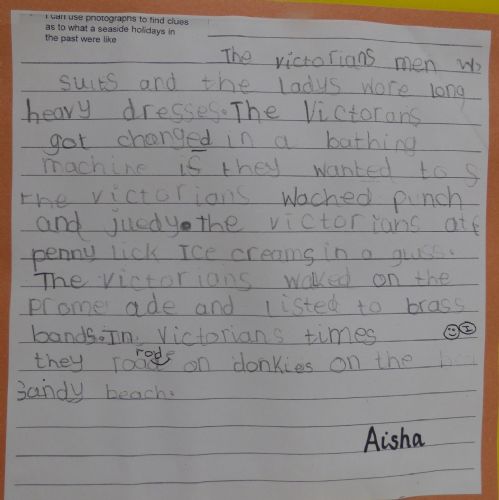 I can use photographs to find clues
as to what a seaside holidays in
the past were like
The victorians men
suits and the ladys wore long
heavy dresses. The Victorans
got changed in a bathing
machine is they wanted to
the victorians wached punch
and juedy. the victorians ate
penny lick Ice creams in a
The victorians walked on the
Prome ade and Listed to brass
bands. In Victorians times
they rode on donkies on the
Sandy beach.
Aisha